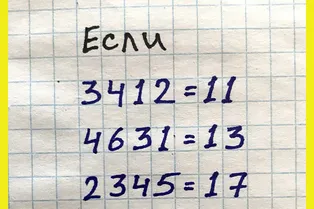 Если
3412=11
4631=13
2345=17